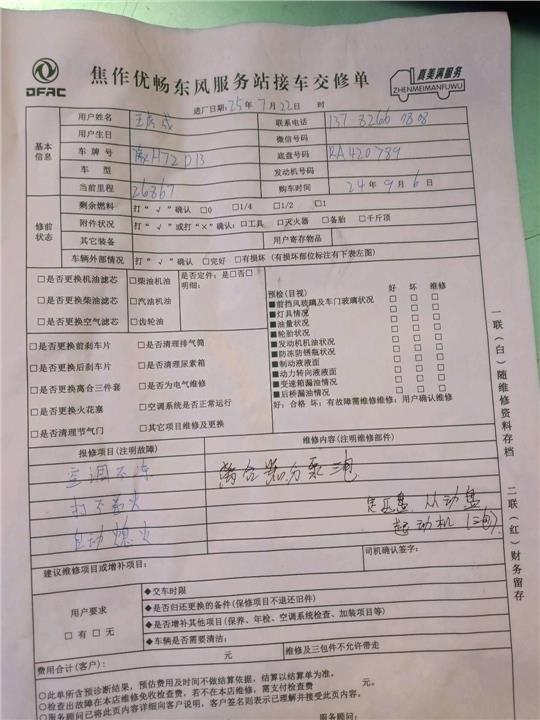 DFAC
焦作优畅东风服务站接车交修单
真美满服务
ZHENMEIMANFUWU
进厂日期：25年 7月22日 时
基本信息
用户姓名
联系电话 137 8266 0808
用户生日
微信号码
车牌号 豫H72D13
底盘号码 RA420789
车型
发动机号码
当前里程 26867
购车时间 24年9月6日
修前状态
剩余燃料 打“√”确认 □0 □1/4 □1/2 □1
附件状况 打“√”或打“×”确认：□工具 □灭火器 □备胎 □千斤顶
其它装备
用户寄存物品
车辆外部情况 打“√”确认 □完好 □有损坏（有损坏部位标注有下表左图）
□是否更换机油滤芯 □柴油机油 是否定件：是□否□
明细：
□是否更换柴油滤芯 □汽油机油
□是否更换空气滤芯 □齿轮油
□是否更换前刹车片 □是否清理排气筒
□是否更换后刹车片 □是否清理尿素箱
□是否更换离合三件套 □是否为电气维修
□是否更换火花塞 □空调系统是否正常运行
□是否清理节气门 □其它项目维修及更换
预检(目视) 好 坏 维修
■前挡风玻璃及车门玻璃状况 □ □ □
■灯具情况 □ □ □
■油量状况 □ □ □
■轮胎状况 □ □ □
■发动机机油状况 □ □ □
■防冻防锈瓶状况 □ □ □
■制动液液面 □ □ □
■动力转向液液面 □ □ □
■变速箱漏油情况 □ □ □
■后桥漏油情况 □ □ □
好：合格 坏：有故障需维修维修：用户确认维修
报修项目(注明故障)
维修内容(注明维修部件)
空调不冷
离合器分泵 三包
打不着火
定压盘 从动盘
自动熄火
起动机（三包）
建议维修项目或增补项目：
司机确认签字：
用户要求
□有 □无
◆交车时限
◆是否归还更换的备件(保修项目不退还旧件)
◆是否增补其他项目(保养、年检、空调系统检查、加装项目等)
◆车辆是否需要清洁：
费用合计(客户)： 元
维修及三包件不允许带走
○此单所含预诊断结果，预估费用及时间不做结算依据，结算以结算单为准。
○检查出故障在本店维修免收检查费，若不在本店维修，需支付检查费 元。
○服务顾问已将此页内容详细向客户说明，客户签名则表示已理解并接受此页内容。
服务顾问：
一联（白）随维修资料存档
二联（红）财务留存